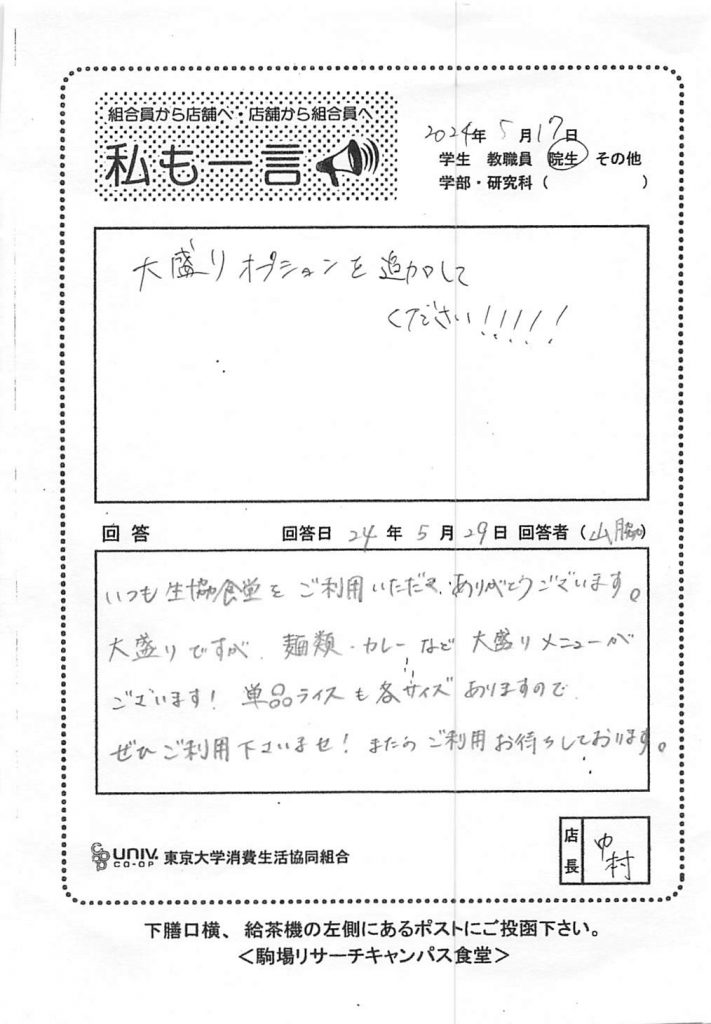 組合員から店舗へ・店舗から組合員へ
私も一言
2024年 5月17日
学生 教職員 院生 その他
学部・研究科( )
大盛りオプションを追加して
ください!!!!!
回答 回答日 24年5月29日 回答者(山脇)
いつも生協食堂をご利用いただき、ありがとうございます。
大盛りですが、麺類・カレーなど大盛りメニューが
ございます! 単品ライスも各サイズありますので、
ぜひご利用下さいませ! またのご利用お待ちしております。
UNIV. CO-OP 東京大学消費生活協同組合
店長 中村
下膳口横、給茶機の左側にあるポストにご投函下さい。
<駒場リサーチキャンパス食堂>